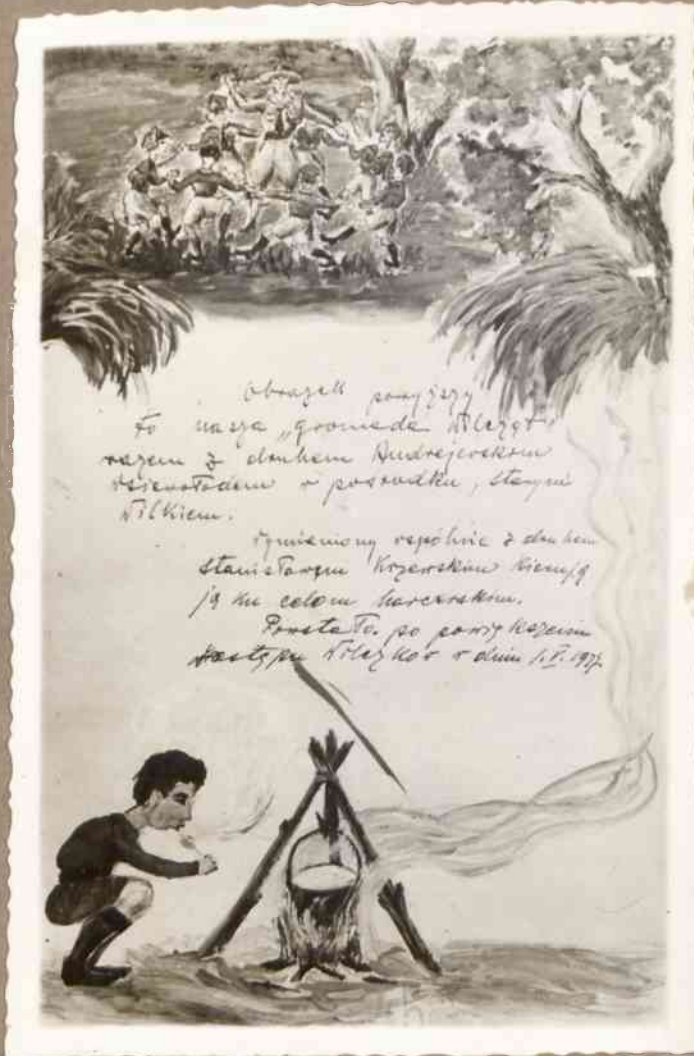 Obrazek powyższy
to nasza „gromada Wilcząt"
razem z druhem Andrejewskim
Wsiewołodem w pośrodku, starym
Wilkiem.
Wymieniony wspólnie z druhem
Stanisławem Krzewskim kierują
ją ku celom harcerskim.
Powstała po powiększeniu
Zastępu Wilczków w dniu 1.V.